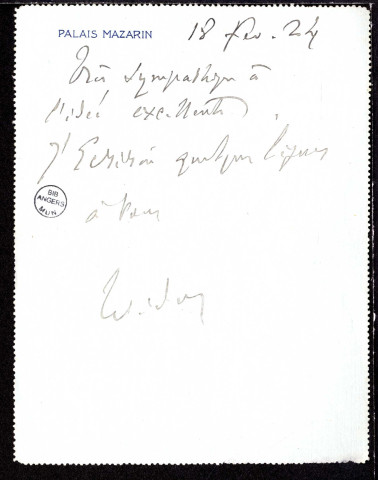 PALAIS MAZARIN
18 fév. 24
Très sympathique à
l'idée excellente.
J'écrirai quelques lignes
BIB
ANGERS
MUN.
à vous
Widor